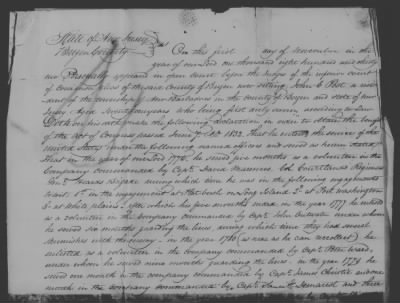 State of New Jersey
Bergen County
On this first day of November in the
year of our Lord one thousand eight hundred and thirty
Personally appeared in open Court before the Judges of the inferior Court
of Common pleas of the said County of Bergen now sitting, John C. Post, a resi
dent of the township of New Barbadoes in the county of Bergen and state of New
Jersey, Aged years, who being first duly sworn, according to Law
Doth on his oath make the following declaration in order to obtain the benefit
of the Act of Congress passed June 7th 1832. That he entered the service of the
United States under the following named officers and served as herein stated
That in the year of our Lord 1776, he served five months as a volunteer in the
Company commanded by Capt. Regiment
Genl. Brigade during which time he was in the following engagements
to wit. in the engagement at Flatbush on Long Island & at Fort Washington
& at White plains. After which five months in the year 1777 he entered
as a volunteer in the Company commanded by Capt. John under whom
he served six months guarding the lines, during which time they had several
Skirmishes with the enemy - in the year 1780 (as near as he can recollect) he
enlisted as a volunteer in the Company commanded by Capt. Peter Ward,
under whom he served nine months guarding the lines. in the year 1779 he
served one month in the company commanded by Capt. James Christie and one
month in the company commanded by Capt. Demarest and three